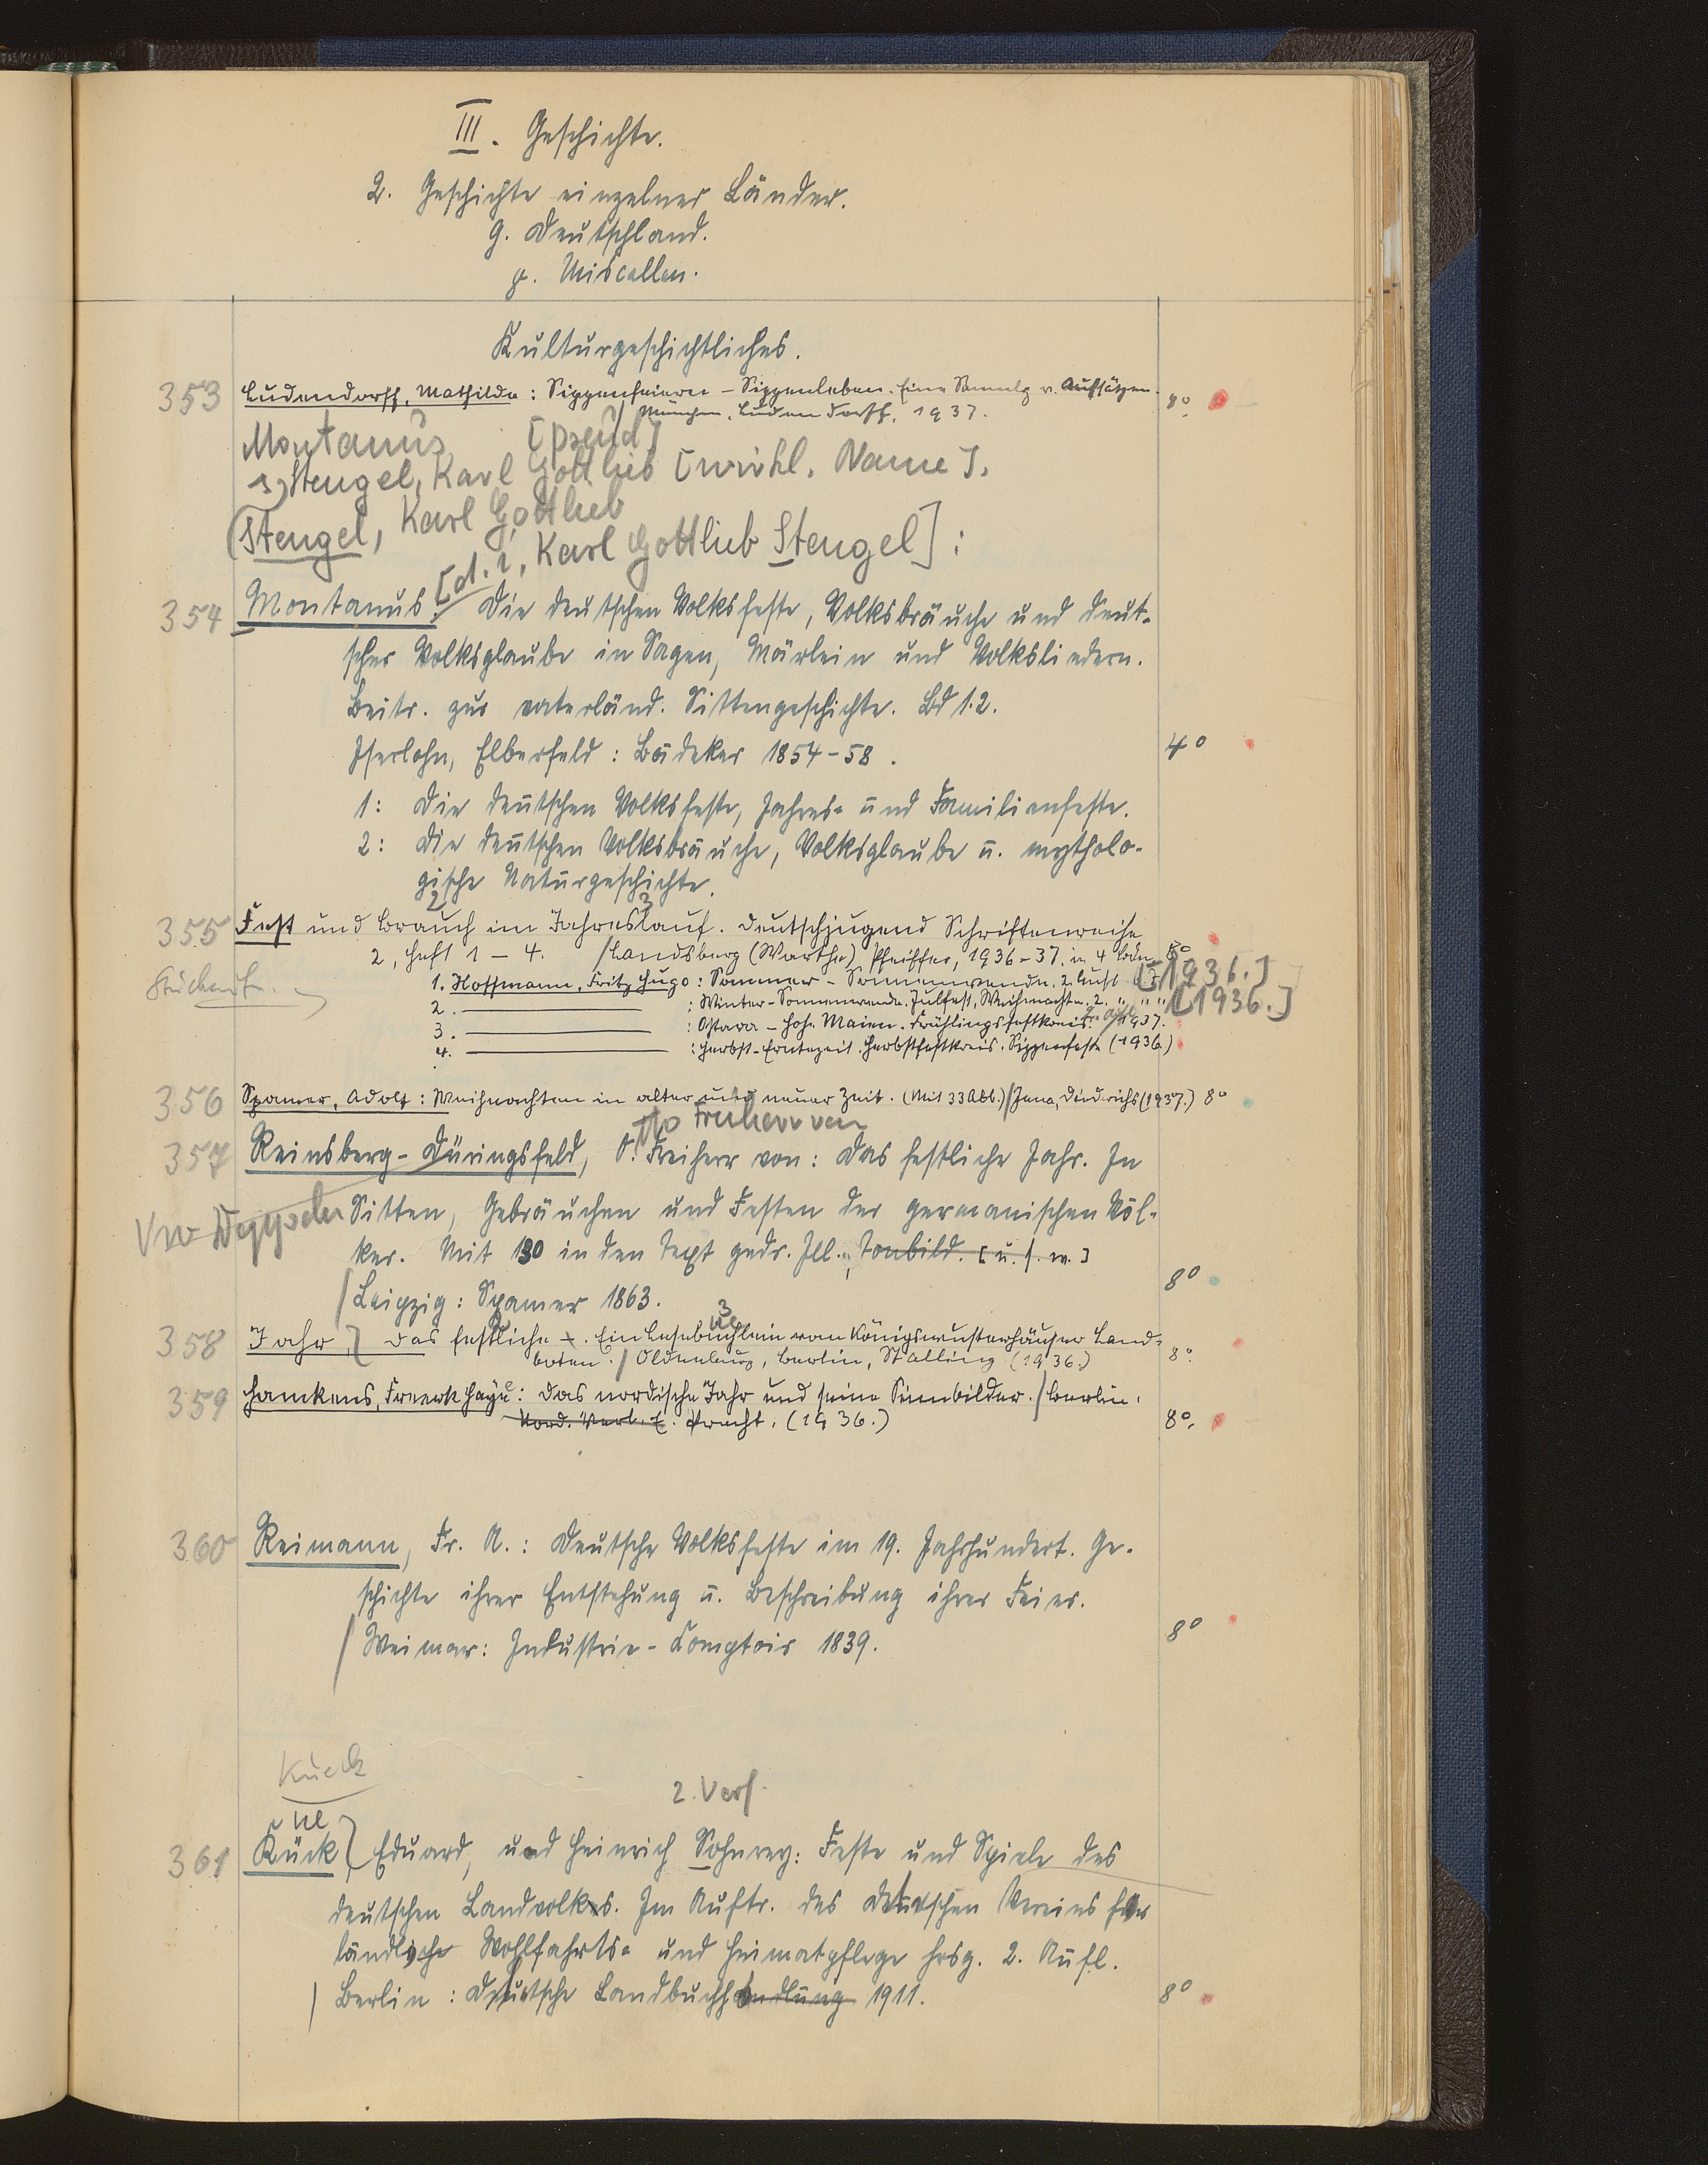 III. Geschichte.
2. Geschichte einzelner Länder.
g. Deutschland.
γ. Miscellen.
Kulturgeschichtliches.
353 Ludendorff, Mathilde: Sippenfeiern – Sippenleben. Eine Sammlg v. Aufsätzen.
/ München, Ludendorff, 1937. 8°.
Montanus [pseud]
s. Stengel, Karl Gottlieb [wirkl. Name].
(Stengel, Karl Gottlieb
[d. i. Karl Gottlieb Stengel]:
354 Montanus: Die deutschen Volksfeste, Volksbräuche und deut-
scher Volksglaube in Sagen, Märlein und Volksliedern.
Beitr. zur vaterländ. Sittengeschichte. Bd 1.2.
Iserlohn, Elberfeld: Bädeker 1854-58. 4°
1: Die deutschen Volksfeste, Jahres- und Familienfeste.
2: Die deutschen Volksbräuche, Volksglaube u. mytholo-
gische Naturgeschichte.
2 3
355 Fest und Brauch im Jahreslauf. Deutschjugend Schriftenreihe
2, Heft 1–4. / Landsberg (Warthe) Pfeiffer, 1936-37. in 4 Bdn 8°
Stücken
1. Hoffmann, Fritz Hugo: Sommer-Sonnenwende. 2. Aufl. [1936.]
2. ——— : Winter-Sonnenwende. Julfest, Weihnachten. 2. " " [1936.]
3. ——— : Ostara – Hohe Maien. Frühlingsfestkreis. 1937.
4. ——— : Herbst-Erntezeit. Herbstfestkreis. Sippenfeste (1936.)
356 Spamer, Adolf: Weihnachten in alter und neuer Zeit. (Mit 33 Abb.) / Jena, Diederichs (1937.) 8°
Otto Freiherr von
357 Reinsberg-Düringsfeld, O. Freiherr von: Das festliche Jahr. In
Sitten, Gebräuchen und Festen der germanischen Völ-
ker. Mit 130 in den Text gedr. Ill., Tonbild. [u.s.w.]
/ Leipzig: Spamer 1863. 8°
2 3
ue
358 Jahr,] Das festliche –. Ein Lesebüchlein vom Königswusterhäuser Land-
boten. / Oldenburg, Berlin, Stalling (1936.) 8°.
359 Hamkens, Freerk Haye: Das nordische Jahr und seine Sinnbilder. / Berlin,
Nord. Verl. E. Precht. (1936.) 8°.
360 Reimann, Fr. A.: Deutsche Volksfeste im 19. Jahrhundert. Ge-
schichte ihrer Entstehung u. Beschreibung ihrer Feier.
/ Weimar: Industrie-Comptoir 1839. 8°
Kueck
2. Verf.
ue
361 Kück] Eduard, und Heinrich Sohnrey: Feste und Spiele des
deutschen Landvolks. Im Auftr. des Deutschen Vereins für
ländliche Wohlfahrts- und Heimatpflege hrsg. 2. Aufl.
/ Berlin: Deutsche Landbuchhandlung 1911. 8°